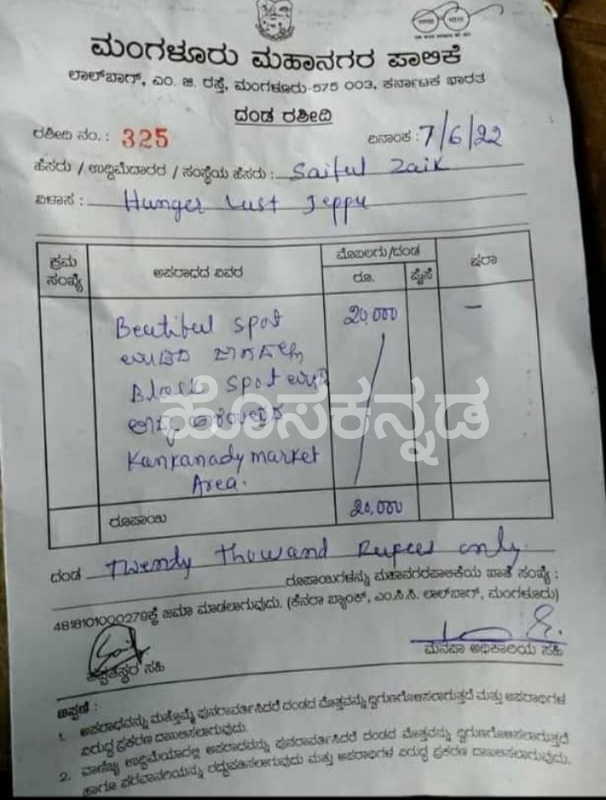 ಮಂಗಳೂರು ಮಹಾನಗರ ಪಾಲಿಕೆ
ಲಾಲ್‌ಬಾಗ್, ಎಂ. ಜಿ. ರಸ್ತೆ, ಮಂಗಳೂರು-575 003, ಕರ್ನಾಟಕ ಭಾರತ
ದಂಡ ರಶೀದಿ
ರಶೀದಿ ನಂ. : 325 ದಿನಾಂಕ : 7/6/22
ಹೆಸರು / ಉದ್ದಿಮೆದಾರರ / ಸಂಸ್ಥೆಯ ಹೆಸರು : Saiful Zaik
ವಿಳಾಸ : Hunger Lust Jeppu
ಕ್ರಮ ಸಂಖ್ಯೆ ಅಪರಾಧದ ವಿವರ ಮೊಬಲಗು/ದಂಡ ಷರಾ
ರೂ. ಪೈಸೆ
Beutiful spot 20,000 –
ಜಾಗದಲ್ಲಿ
Black spot
Kankanady market
Area.
ರೂಪಾಯಿ 20,000
ದಂಡ Twendy Thowand Rupees only
ರೂಪಾಯಿಗಳನ್ನು ಮಹಾನಗರಪಾಲಿಕೆಯ ಖಾತೆ ಸಂಖ್ಯೆ :
4818101000279ಕ್ಕೆ ಜಮಾ ಮಾಡಲಾಗುವುದು. (ಕೆನರಾ ಬ್ಯಾಂಕ್, ಎಂ.ಸಿ.ಸಿ. ಲಾಲ್‌ಬಾಗ್, ಮಂಗಳೂರು)
ಸಹಿ ಮನಪಾ ಅಧಿಕಾರಿಯ ಸಹಿ
ಟಿಪ್ಪಣಿ :
1. ಅಪರಾಧವನ್ನು ಮತ್ತೊಮ್ಮೆ ಪುನರಾವರ್ತಿಸಿದರೆ ದಂಡದ ಮೊತ್ತವನ್ನು ದ್ವಿಗುಣಗೊಳಿಸಲಾಗುತ್ತದೆ ಮತ್ತು ಅಪರಾಧಿಗಳ
ವಿರುದ್ಧ ಪ್ರಕರಣ ದಾಖಲಿಸಲಾಗುವುದು.
2. ವಾಣಿಜ್ಯ ಉದ್ದಿಮೆಯಾದಲ್ಲಿ ಅಪರಾಧವನ್ನು ಪುನರಾವರ್ತಿಸಿದರೆ ದಂಡದ ಮೊತ್ತವನ್ನು ದ್ವಿಗುಣಗೊಳಿಸಲಾಗುತ್ತದೆ
ಹಾಗೂ ಪರವಾನಿಗೆಯನ್ನು ರದ್ದುಪಡಿಸಲಾಗುವುದು ಮತ್ತು ಅಪರಾಧಿಗಳ ವಿರುದ್ಧ ಪ್ರಕರಣ ದಾಖಲಿಸಲಾಗುವುದು.
ಹೊಸಕನ್ನಡ